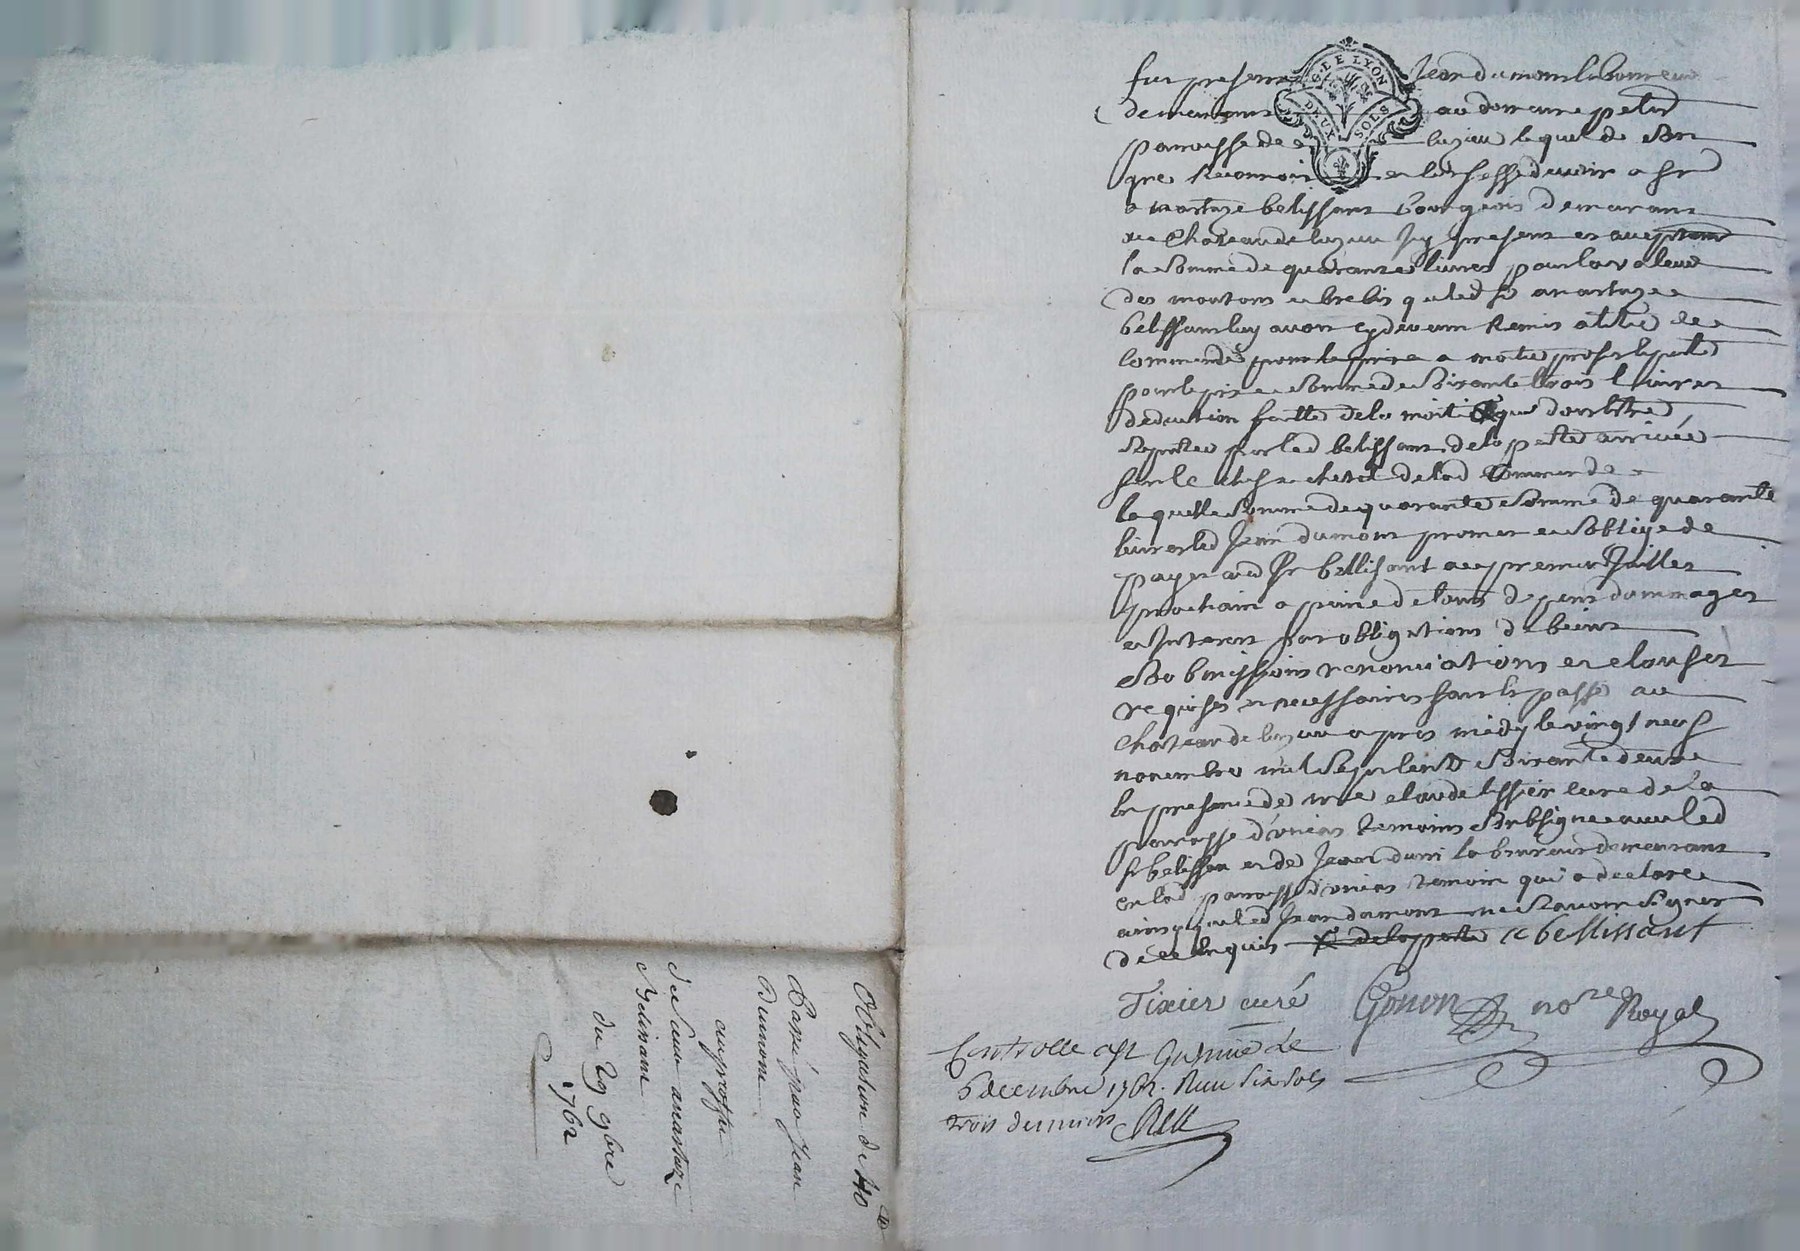 fut present Jean dumont laboureur
demeurant au domaine petit
paroisse de luzeu lequel de son
gré reconnoit et confesse devoir a sr
anastaze belissant bourgeois demeurant
au chateau de luzeu icy present et acceptant
la somme de quarante livres pour la valeur
des moutons et brebis que led sr anastaze
belissant luy avoit cy devant remis a titre de
commande a moitié profit et perte
pour le prix et somme de soixante trois livres
deduction faitte de la moitié qui doit être
suportée par led belissant de la perte arrivée
sur le chef cheptel de lad commande
laquelle somme de quarante somme de quarante
livres led Jean dumont promet et soblige de
payer aud sr bellisant au premier Juillet
prochain a peine de tous depens dommages
et interets par obligations de biens
soumissions renonciations et clauses
requises et necessaires fait et passé au
chateau de luzeu apres midy le vingt neuf
novembre mil sept cents soixante deux
en presence de mre claude tissier curé de la
paroisse d'oniers temoins soubsigné avec led
sr belissan et de Jean laboureur demeurant
en lad paroisse d'oniers temoin qui a declaré
ainsy que led Jean dumont ne savoir signer
de ce enquis de la perte a bellissant
Tixier curé Gonon nore Royal
Controllé le
6 decembre 1762. Reçu six sols
trois deniers
Obligation de 40 tt
Passé par Jean
Dumont
au proffit
de Sieur anastaze
Belissant
du 29 9bre
1762
G. DE LYON
DEUX SOLS